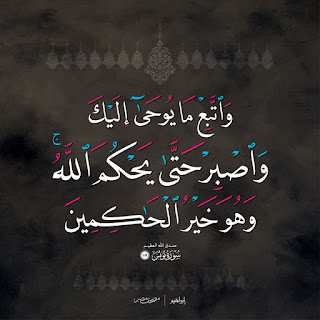 وَٱتَّبِعْ مَا يُوحَىٰٓ إِلَيْكَ
وَٱصْبِرْ حَتَّىٰ يَحْكُمَ ٱللَّهُ ۚ
وَهُوَ خَيْرُ ٱلْحَٰكِمِينَ
صدق الله العظيم
سورة يونس